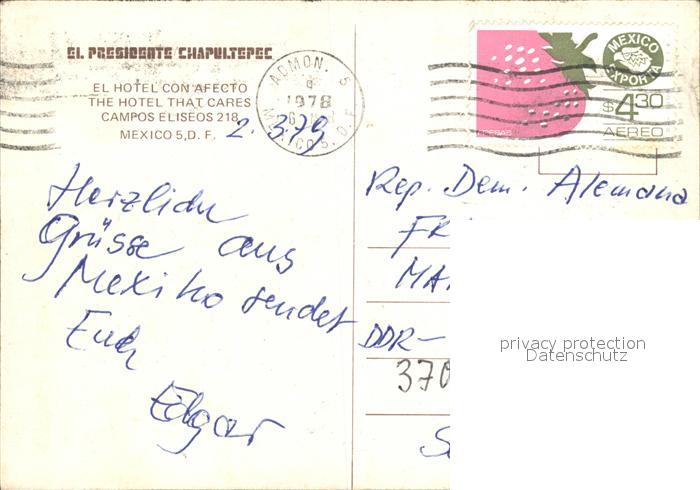 EL PRESIDENTE CHAPULTEPEC
EL HOTEL CON AFECTO
THE HOTEL THAT CARES
CAMPOS ELISEOS 218
MEXICO 5, D. F.
2. 3.79
ADMON. 5
1978
MEXICO 5, D.F.
MEXICO
EXPORTA
$4.30
AEREO
FRESAS
Herzliche
Grüsse aus
Mexiko sendet
Euch
Edgar
Rep. Dem. Alemana
FR
MA
DDR-
370
privacy protection
Datenschutz